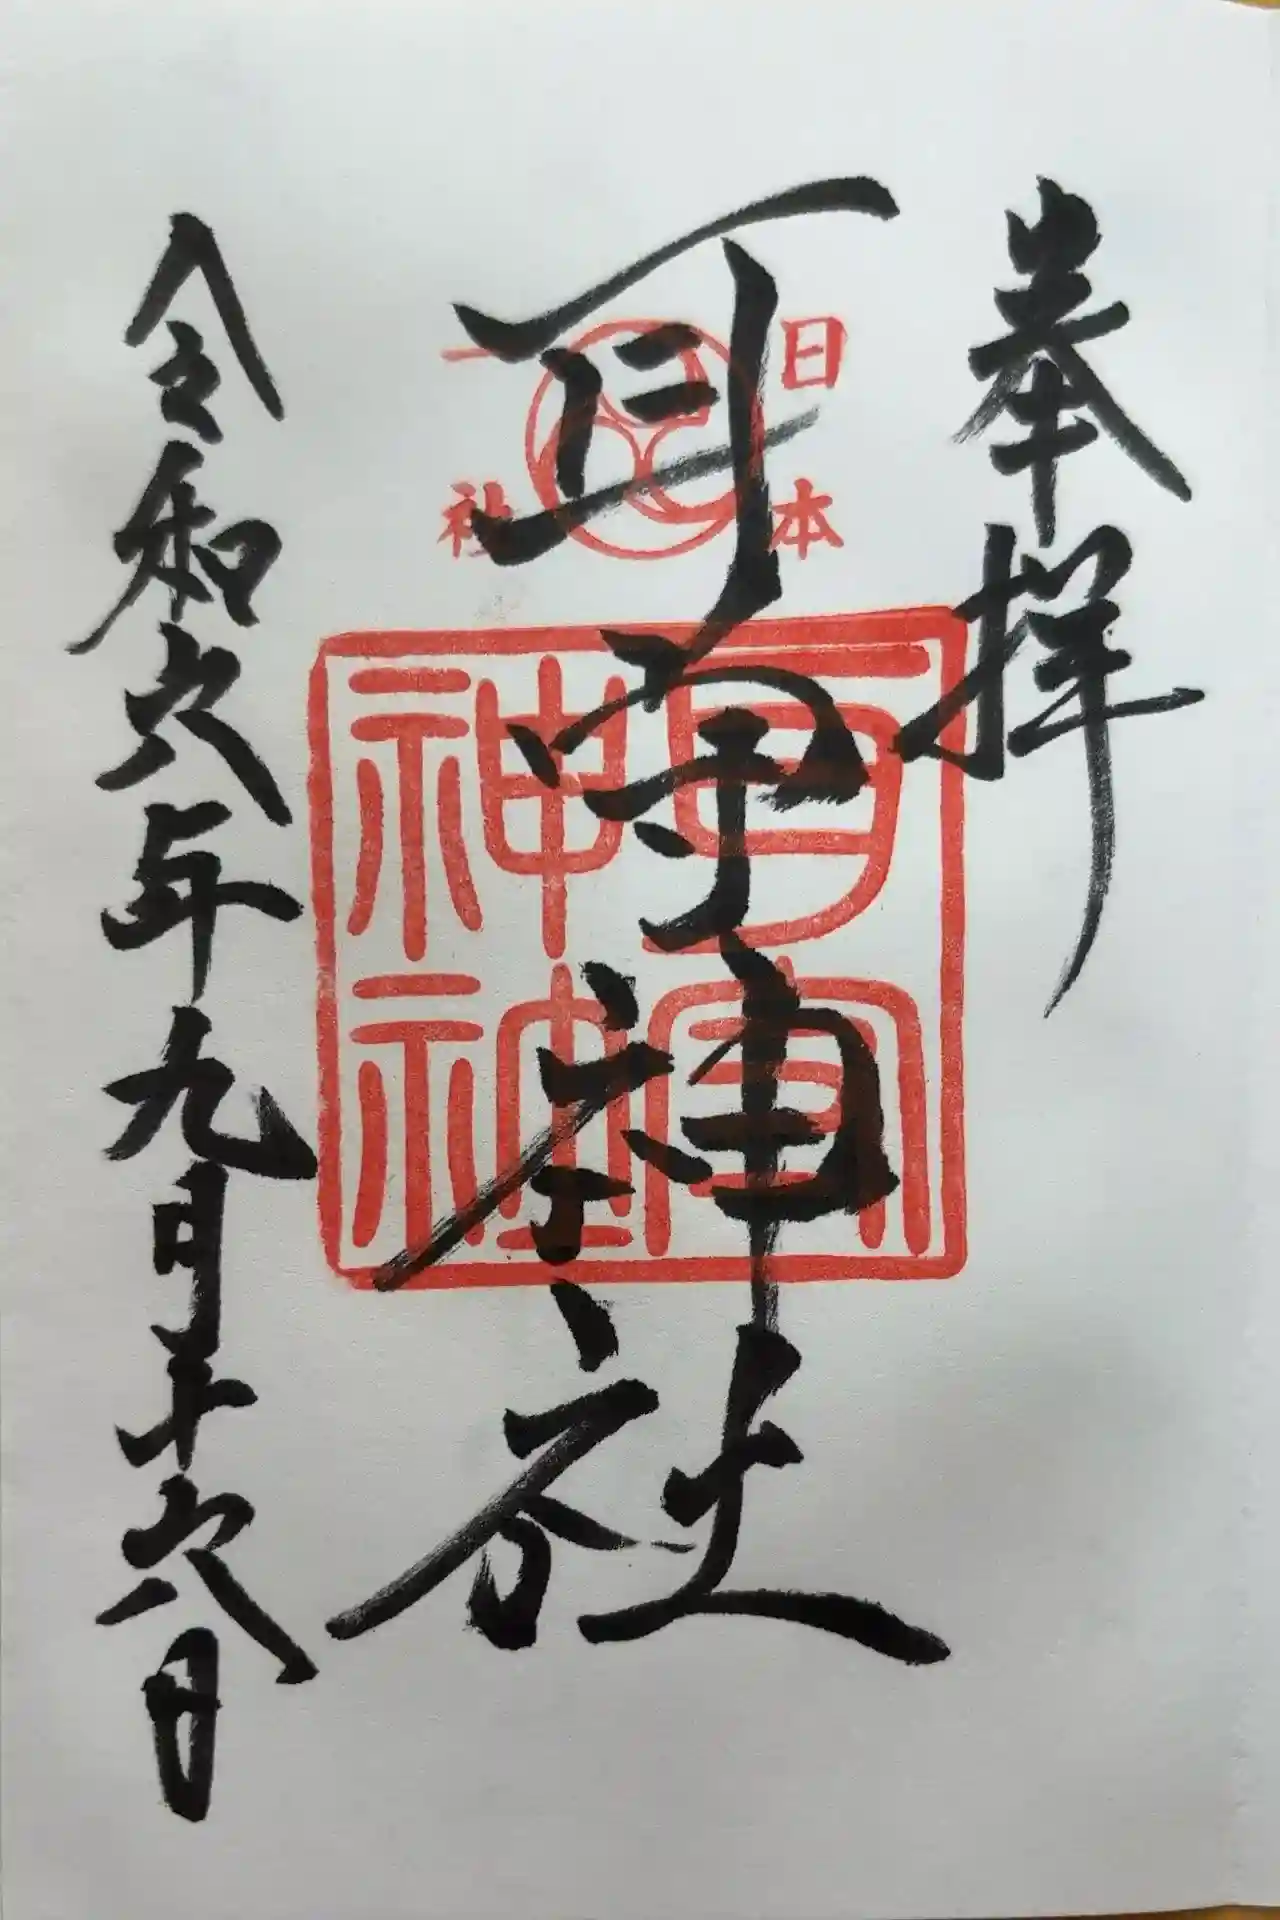 奉拝
日本一社
耳守神社
耳守神社
令和六年九月十六日